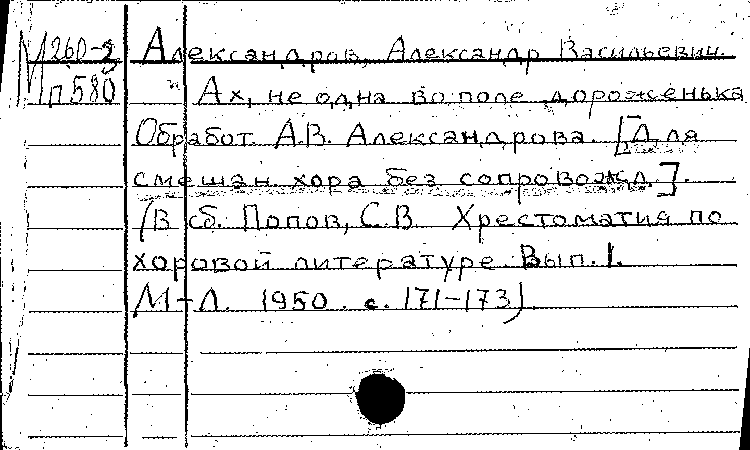 М 260-3 Александров, Александр Васильевич.
п 580 "Ах, не одна во поле дороженька
Обработ. А.В. Александрова. [Для
смешан. хора без сопровожд.].
(В сб. Попов, С.В. Хрестоматия по
хоровой литературе. Вып. 1.
М-Л. 1950. с. 171-173)